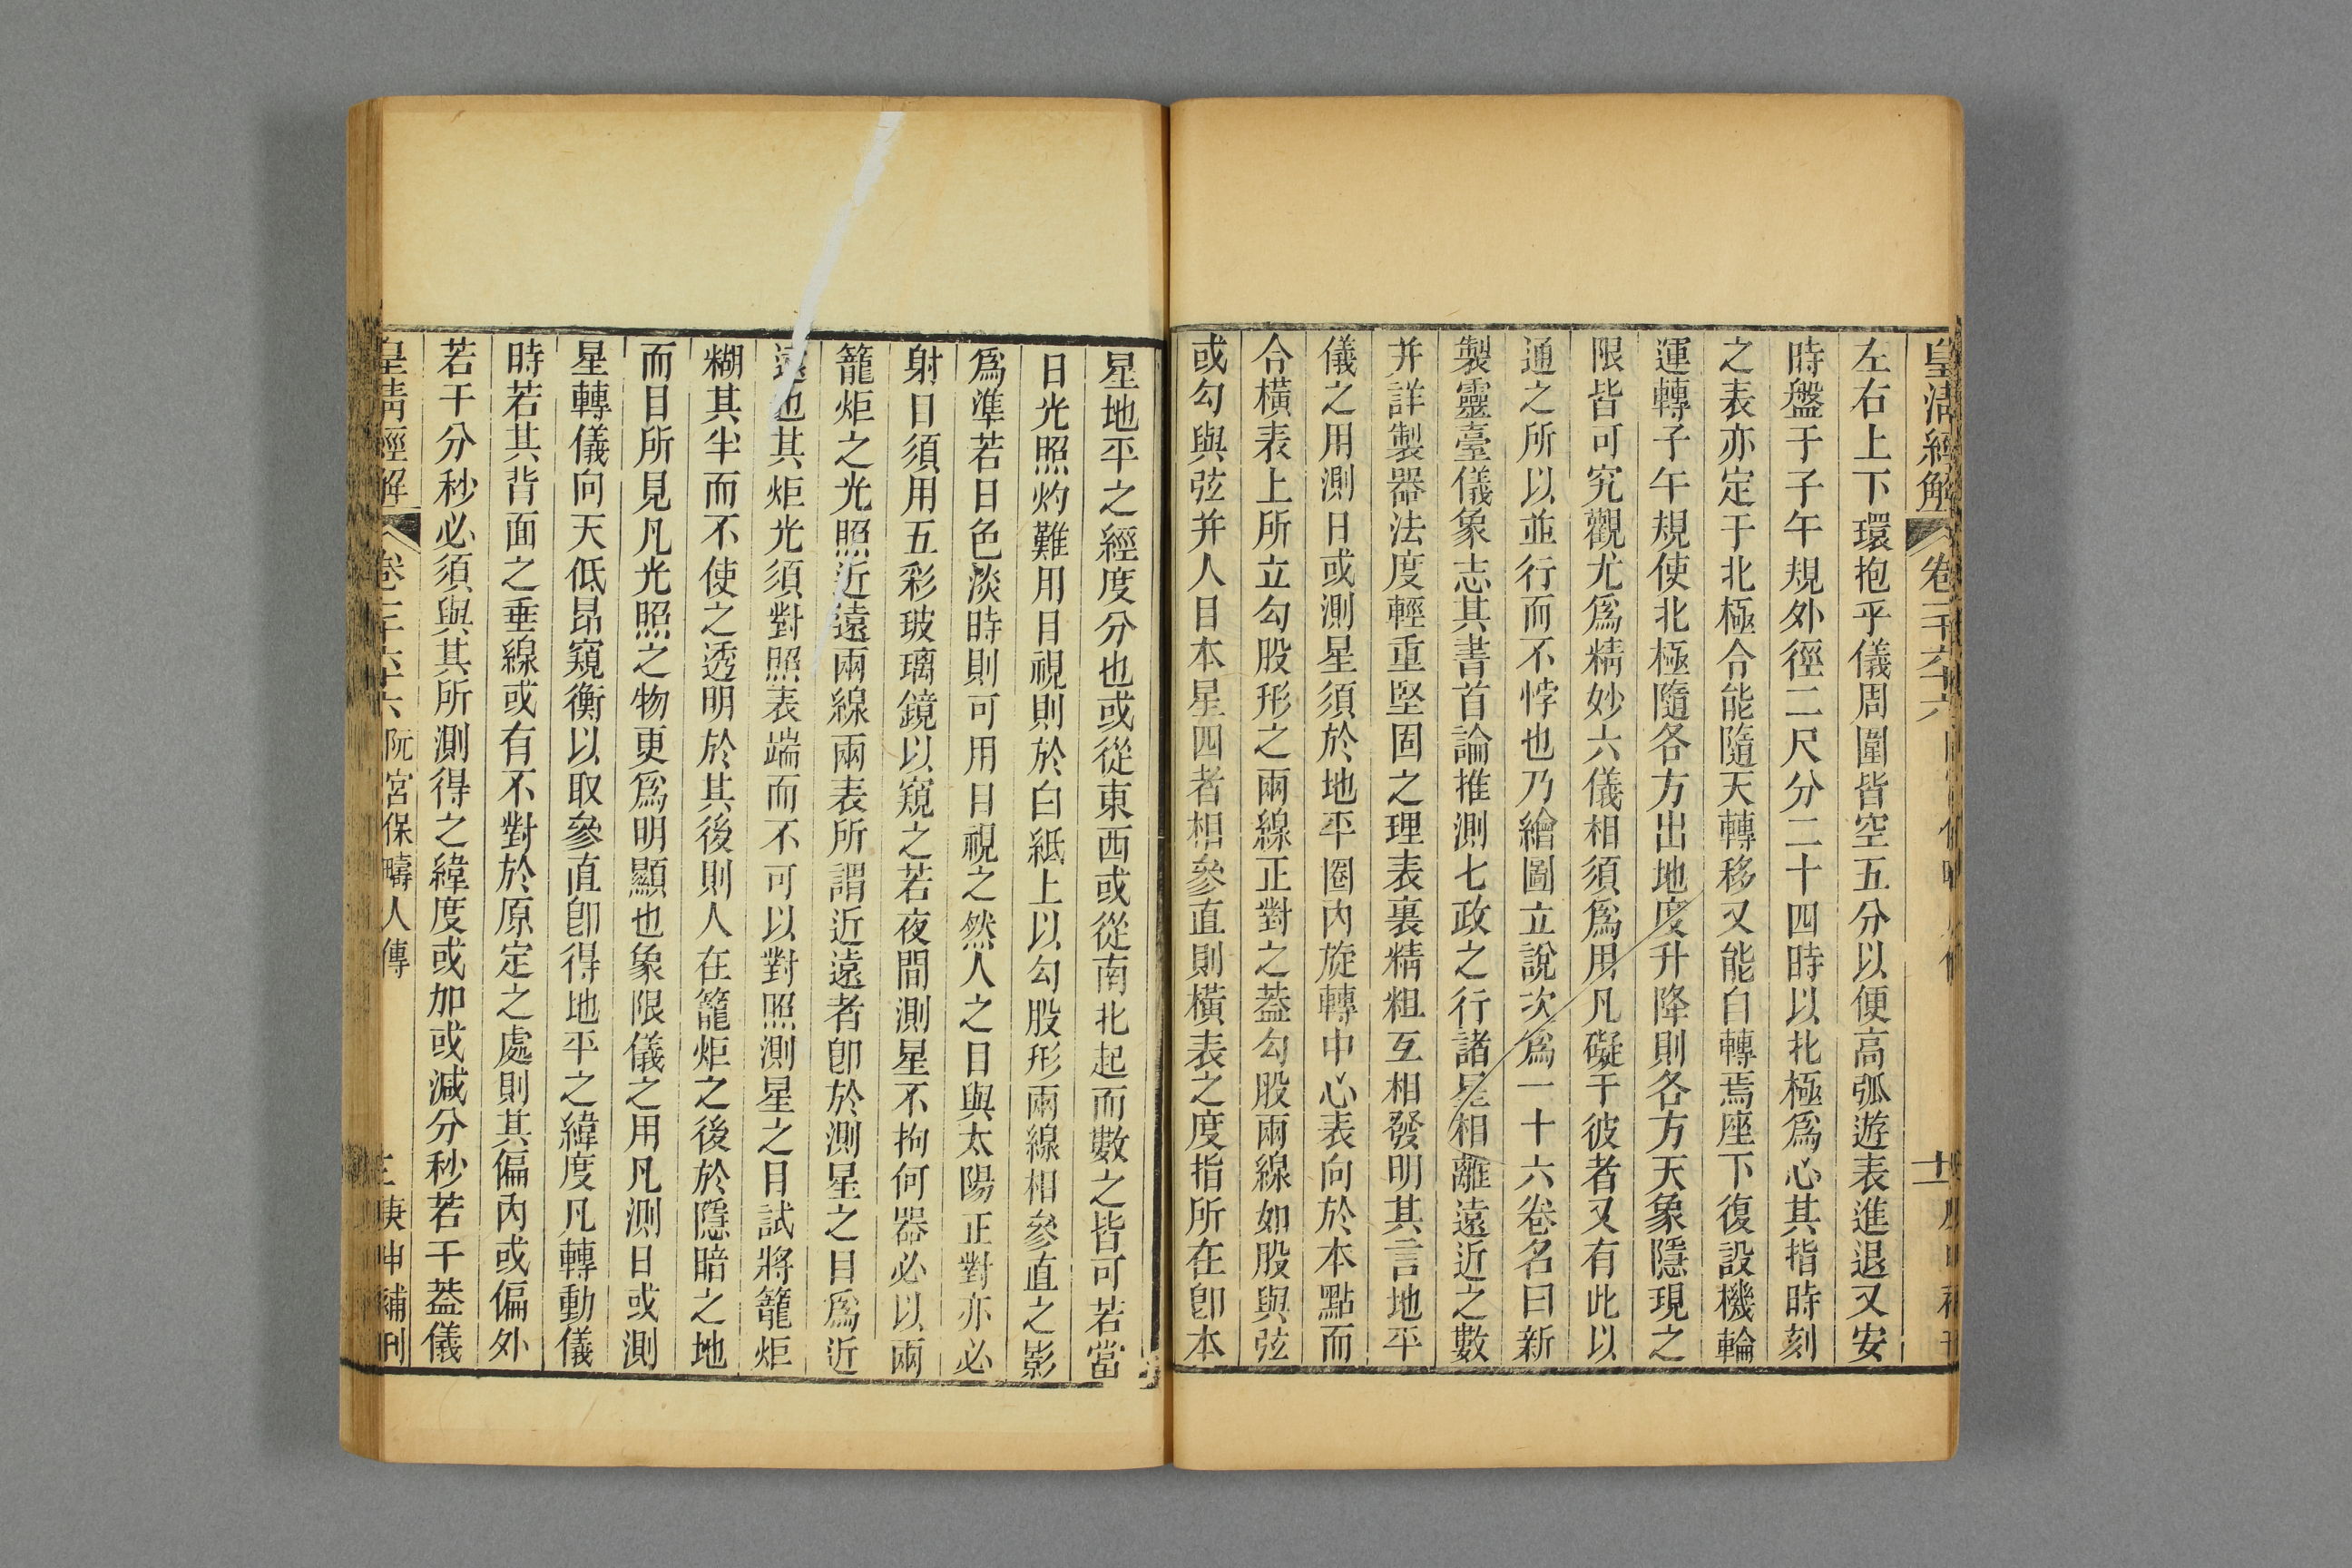 皇清經解 卷一千六十六
左右上下環抱乎儀周圍皆空五分以便高弧遊表進退又安
時盤于子午規外徑二尺分二十四時以北極爲心其指時刻
之表亦定于北極合能隨天轉移又能自轉焉座下復設機輪
運轉子午規使北極隨各方出地度升降則各方天象隱現之
限皆可究觀尤爲精妙六儀相須爲用凡礙于彼者又有此以
通之所以並行而不悖也乃繪圖立說次爲一十六卷名曰新
製靈臺儀象志其書首論推測七政之行諸星相離遠近之數
并詳製器法度輕重堅固之理表裏精粗互相發明其言地平
儀之用測日或測星須於地平圈內旋轉中心表向於本點而
合橫表上所立勾股形之兩線正對之蓋勾股兩線如股與弦
或勾與弦并人目本星四者相參直則橫表之度指所在卽本
星地平之經度分也或從東西或從南北起而數之皆可若當
日光照灼難用目視則於白紙上以勾股形兩線相參直之影
爲準若日色淡時則可用目視之然人之目與太陽正對亦必
射目須用五彩玻璃鏡以窺之若夜間測星不拘何器必以兩
籠炬之光照近遠兩線兩表所謂近遠者卽於測星之目爲近
遠也其炬光須對照表端而不可以對照測星之目試將籠炬
糊其半而不使之透明於其後則人在籠炬之後於隱暗之地
而目所見凡光照之物更爲明顯也象限儀之用凡測日或測
星轉儀向天低昂窺衡以取參直卽得地平之緯度凡轉動儀
時若其背面之垂線或有不對於原定之處則其偏內或偏外
若干分秒必須與其所測得之緯度或加或減分秒若干蓋儀
皇清經解 卷一千六十六 阮宮保疇人傳 庚申補刊